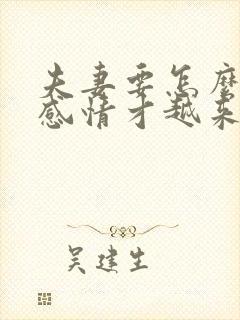 夫妻要怎麼
感情才越來
吴建生